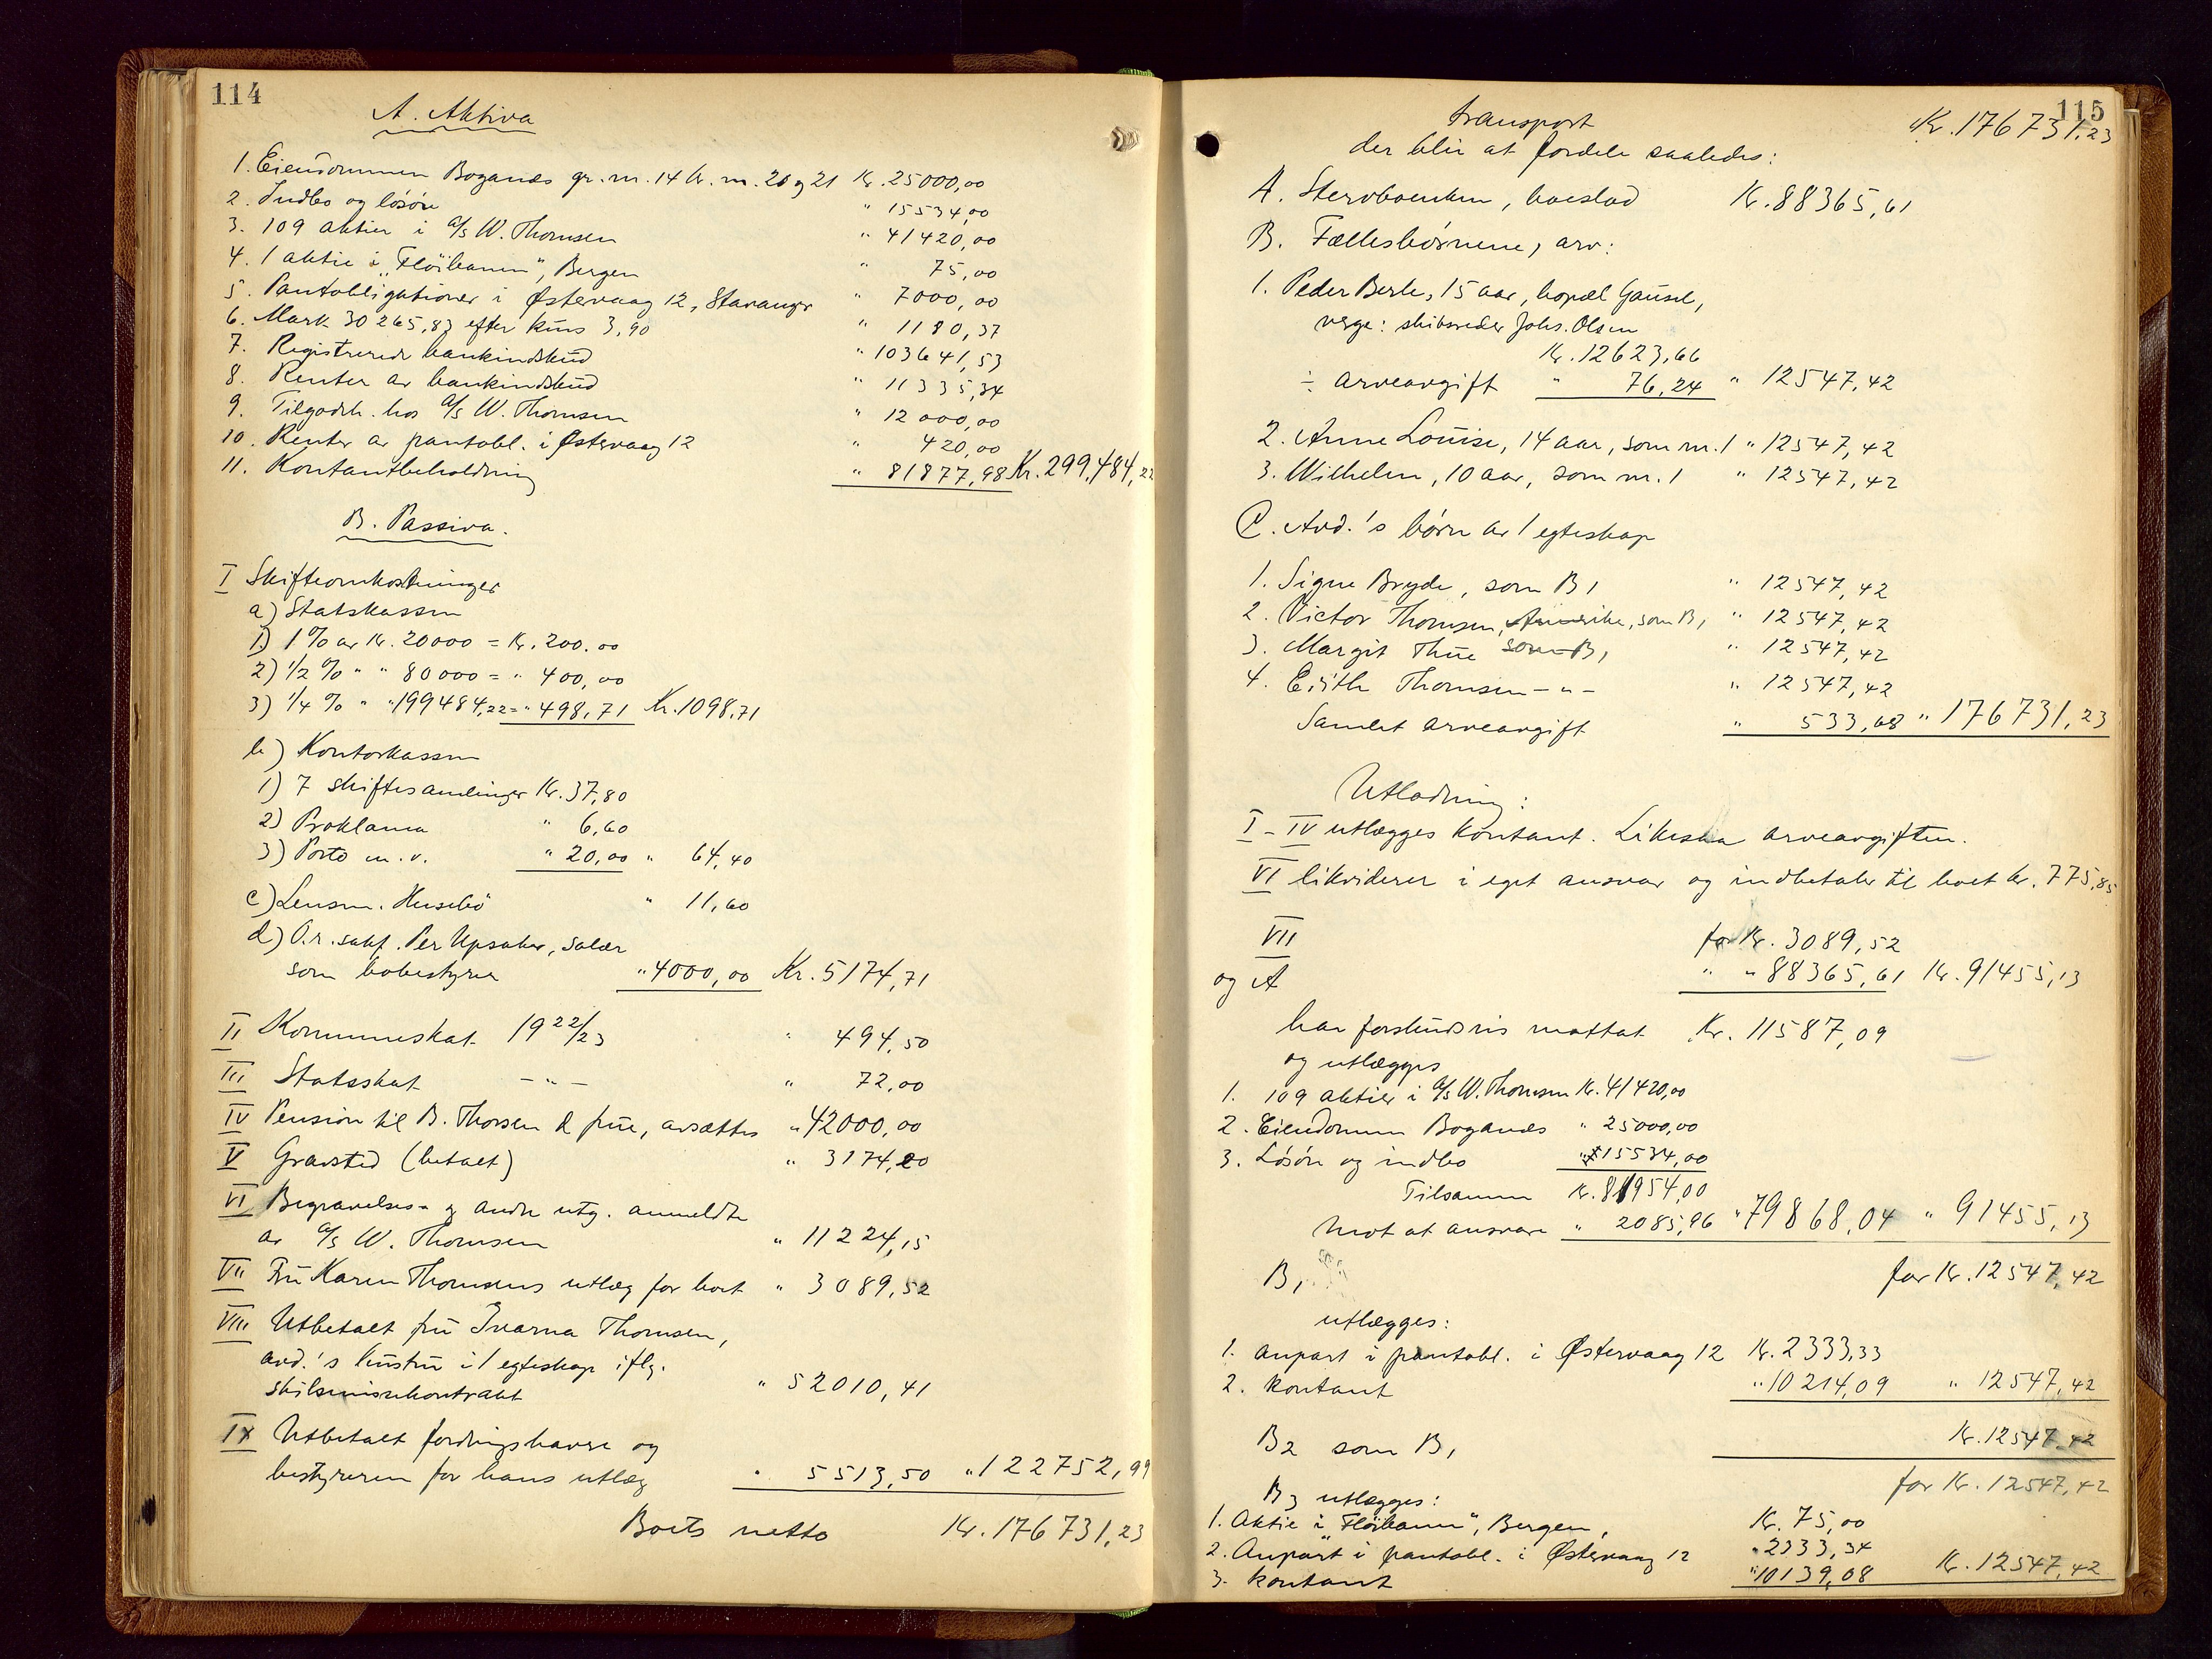 114
A. Aktiva
1. Eiendommen Boganæs gr. nr. 14 br. nr. 20 og 21 Kr. 25000,00
2. Indbo og løsøre " 15534,00
3. 109 aktier i A/S W. Thomsen " 41420,00
4. 1 aktie i "Fløibanen", Bergen " 75,00
5. Pantobligationer i Østervaag 12, Stavanger " 7000,00
6. Mark 30265,83 efter kurs 3,90 " 1180,37
7. Registrerede bankindskud " 103641,53
8. Renter av bankindskud " 11335,34
9. Tilgodeh. hos A/S W. Thomsen " 12000,00
10. Renter av pantobl. i Østervaag 12 " 420,00
11. Kontantbeholdning " 81877,98 Kr. 299.484,22
B. Passiva.
I Skifteomkostninger
a) Statskassen
1) 1% av Kr. 20000 = Kr. 200.00
2) 1/2 % " " 80000 = " 400,00
3) 1/4 % " " 199484,22 = " 498,71 Kr. 1098,71
b) Kontorkassen
1) 7 skiftesamlinger Kr. 37,80
2) Proklama " 6,60
3) Porto m.v. " 20,00 " 64,40
c) Lensm. Husebö " 11,60
d) O.r.sakf. Per Upsaker, salær
som bobestyrer " 4000,00 Kr. 5174,71
II Kommuneskat 1922/23 " 494,50
III Statsskat - " - " 72,00
IV Pension til B. Thorsen & frue, avsættes " 42000,00
V Gravsted (betalt) " 3174,20
VI Begravelses- og andre utg. anmeldte
av A/S W. Thomsen " 11224,15
VII Fru Karen Thomsens utlæg for boet " 3089,52
VIII Utbetalt fru Ivarna Thomsen,
avd.'s hustru i 1 egteskap iflg.
skilsmissekontrakt " 52010,41
IX Utbetalt fordringshavere og
bestyreren for hans utlæg " 5513,50 " 122752,99
Boets netto Kr. 176731,23
115
transport Kr. 176731,23
der blir at fordele saaledes:
A. Stervboenken, boeslod Kr. 88365,61
B. Fællesbørnene, arv:
1. Peder Berle, 15 aar, bopæl Gausel,
verge: skibsreder Johs. Olsen
Kr. 12623,66
÷ arveavgift " 76,24 " 12547,42
2. Anne Louise, 14 aar, som nr. 1 " 12547,42
3. Wilhelm, 10 aar, som nr. 1 " 12547,42
C. Avd.'s børn av 1 egteskap
1. Signe Bryde, som B1 " 12547,42
2. Victor Thomsen, Amerika, som B1 " 12547,42
3. Margit Thue som B1 " 12547,42
4. Edith Thomsen - " - " 12547,42
Samlet arveavgift " 533,68 " 176731,23
Utlodning:
I - IV utlægges kontant. Likesaa arveavgiften.
VI likviderer i eget ansvar og indbetaler til boet kr. 775,85
VII for Kr. 3089,52
og A " " 88365,61 Kr. 91455,13
har forskudsvis mottat Kr. 11587,09
og utlægges
1. 109 aktier i A/S W. Thomsen Kr. 41420,00
2. Eiendommen Boganæs " 25000,00
3. Løsøre og indbo " 15534,00
Tilsammen Kr. 81954,00
mot at ansvare " 2085,96 " 79868,04 " 91455,13
B1 for Kr. 12547,42
utlægges:
1. anpart i pantobl. i Østervaag 12 Kr. 2333,33
2. kontant " 10214,09 " 12547,42
B2 som B1 Kr. 12547,42
B3 utlægges: for Kr. 12547,42
1. Aktie i "Fløibanen", Bergen, Kr. 75,00
2. Anpart i pantobl. i Østervaag 12 " 2333,34
3. kontant " 10139,08 Kr. 12547,42